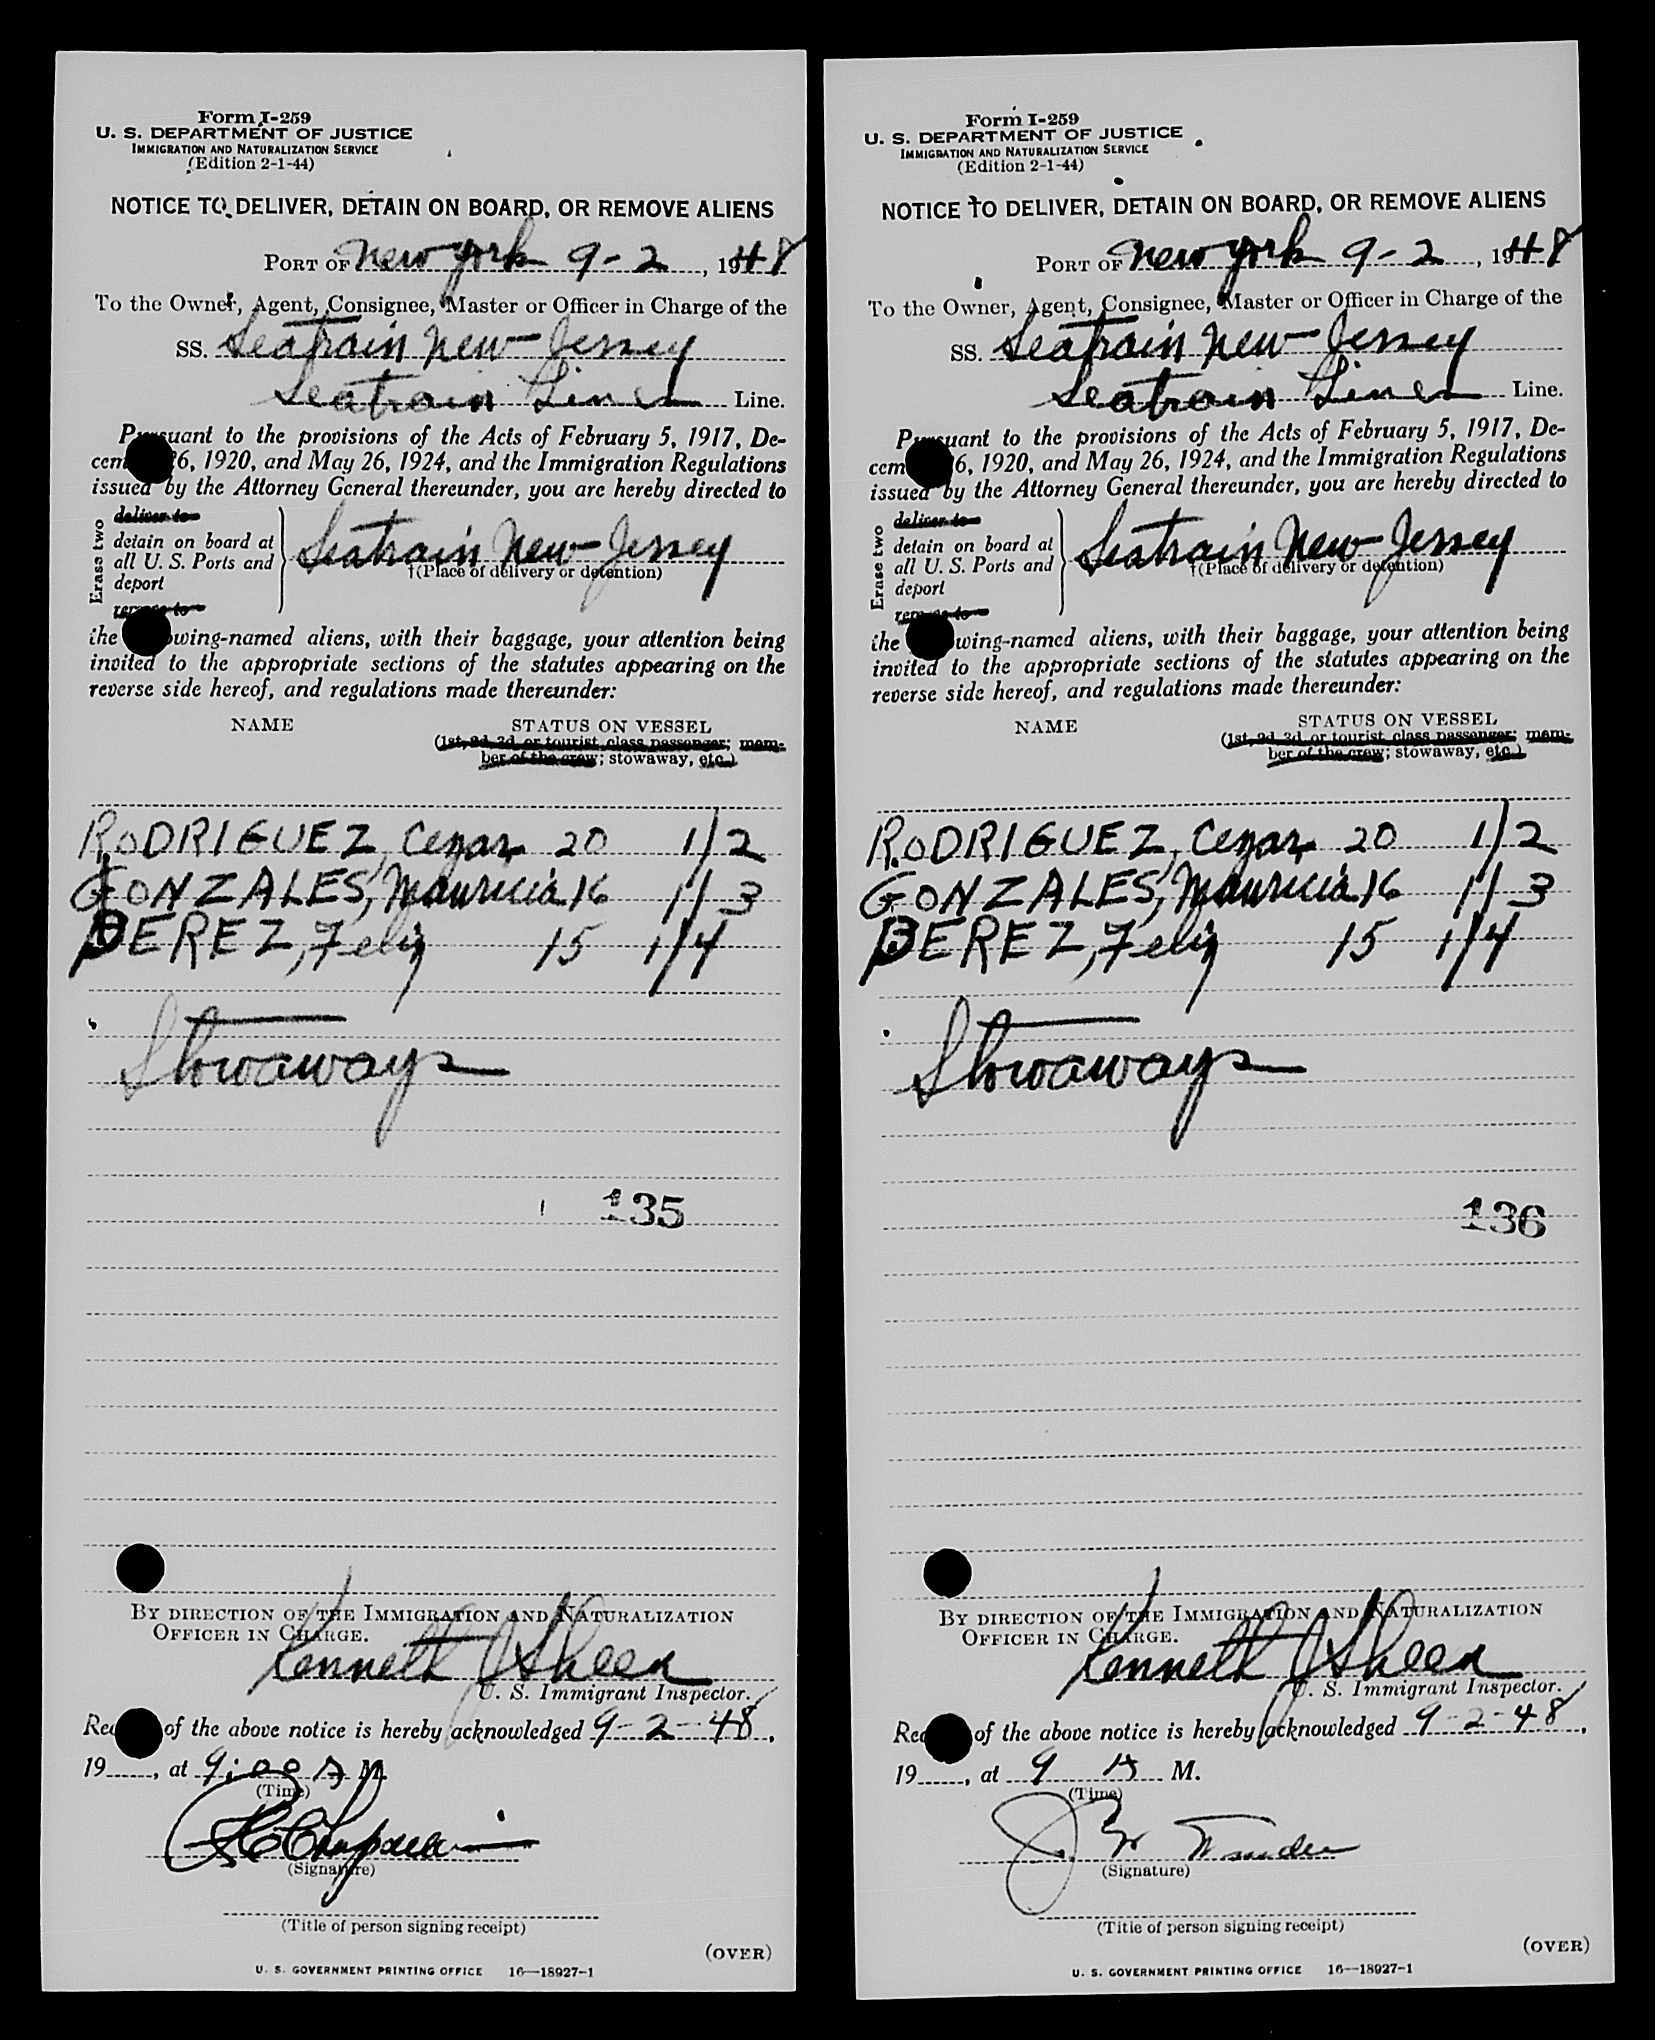 Form I-259
U. S. DEPARTMENT OF JUSTICE
IMMIGRATION AND NATURALIZATION SERVICE
(Edition 2-1-44)
NOTICE TO DELIVER, DETAIN ON BOARD, OR REMOVE ALIENS
PORT OF New York 9-2, 1948
To the Owner, Agent, Consignee, Master or Officer in Charge of the
SS. Seatrain New Jersey
Seatrain Lines Line.
Pursuant to the provisions of the Acts of February 5, 1917, De-
cem 26, 1920, and May 26, 1924, and the Immigration Regulations
issued by the Attorney General thereunder, you are hereby directed to
Erase two
deliver to
detain on board at
all U. S. Ports and
deport
remove to
Seatrain New Jersey
†(Place of delivery or detention)
the wing-named aliens, with their baggage, your attention being
invited to the appropriate sections of the statutes appearing on the
reverse side hereof, and regulations made thereunder:
NAME STATUS ON VESSEL
(1st, 2d, 3d, or tourist class passenger; mem-
ber of the crew; stowaway, etc.)
RODRIGUEZ, Cezar 20 1/2
GONZALES, Mauricia 16 1/3
PEREZ, Felix 15 1/4
Stowaways
135
BY DIRECTION OF THE IMMIGRATION AND NATURALIZATION
OFFICER IN CHARGE.
Kenneth J Sheea
U. S. Immigrant Inspector.
Rec of the above notice is hereby acknowledged 9-2-48,
19, at 9:00 A M.
(Time)
(Signature)
(Title of person signing receipt)
(OVER)
U. S. GOVERNMENT PRINTING OFFICE 16—18927-1
Form I-259
U. S. DEPARTMENT OF JUSTICE
IMMIGRATION AND NATURALIZATION SERVICE
(Edition 2-1-44)
NOTICE TO DELIVER, DETAIN ON BOARD, OR REMOVE ALIENS
PORT OF New York 9-2, 1948
To the Owner, Agent, Consignee, Master or Officer in Charge of the
SS. Seatrain New Jersey
Seatrain Lines Line.
Pursuant to the provisions of the Acts of February 5, 1917, De-
cem 26, 1920, and May 26, 1924, and the Immigration Regulations
issued by the Attorney General thereunder, you are hereby directed to
Erase two
deliver to
detain on board at
all U. S. Ports and
deport
remove to
Seatrain New Jersey
†(Place of delivery or detention)
the wing-named aliens, with their baggage, your attention being
invited to the appropriate sections of the statutes appearing on the
reverse side hereof, and regulations made thereunder:
NAME STATUS ON VESSEL
(1st, 2d, 3d, or tourist class passenger; mem-
ber of the crew; stowaway, etc.)
RODRIGUEZ, Cezar 20 1/2
GONZALES, Mauricia 16 1/3
PEREZ, Felix 15 1/4
Stowaways
136
BY DIRECTION OF THE IMMIGRATION AND NATURALIZATION
OFFICER IN CHARGE.
Kenneth J Sheea
U. S. Immigrant Inspector.
Rec of the above notice is hereby acknowledged 9-2-48,
19, at 9 A M.
(Time)
(Signature)
(Title of person signing receipt)
(OVER)
U. S. GOVERNMENT PRINTING OFFICE 16—18927-1